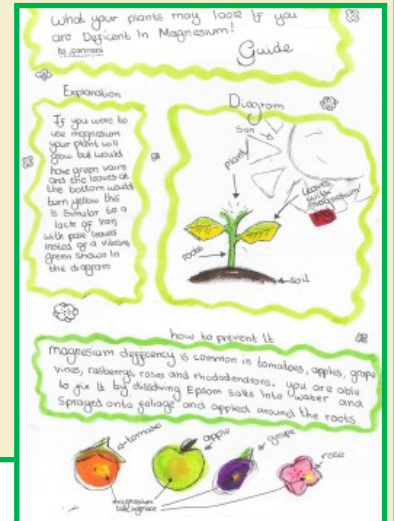 What your plants may look If you
are Deficent In Magnesium!
to farmers
Guide
Explanation
If you were to
use magnesium
your plant will
grow but would
have green vains
and the leaves at
the bottom would
burn yellow this
is simular to a
lack of Iron
with pale leaves
insted of a vibrant
green shown in
the diagram
Diagram
Sun
plant
leaves
with
magnesium
roots
soil
how to prevent It
Magnesium defficency is common in tomatoes, apples, grape
vines, rasberrys, roses and rhododendrons. you are able
to fix it by dissolving Epsom salts into water and
Sprayed onto foliage and applied around the roots.
tomatoe
apple
grape
rose
magnesium